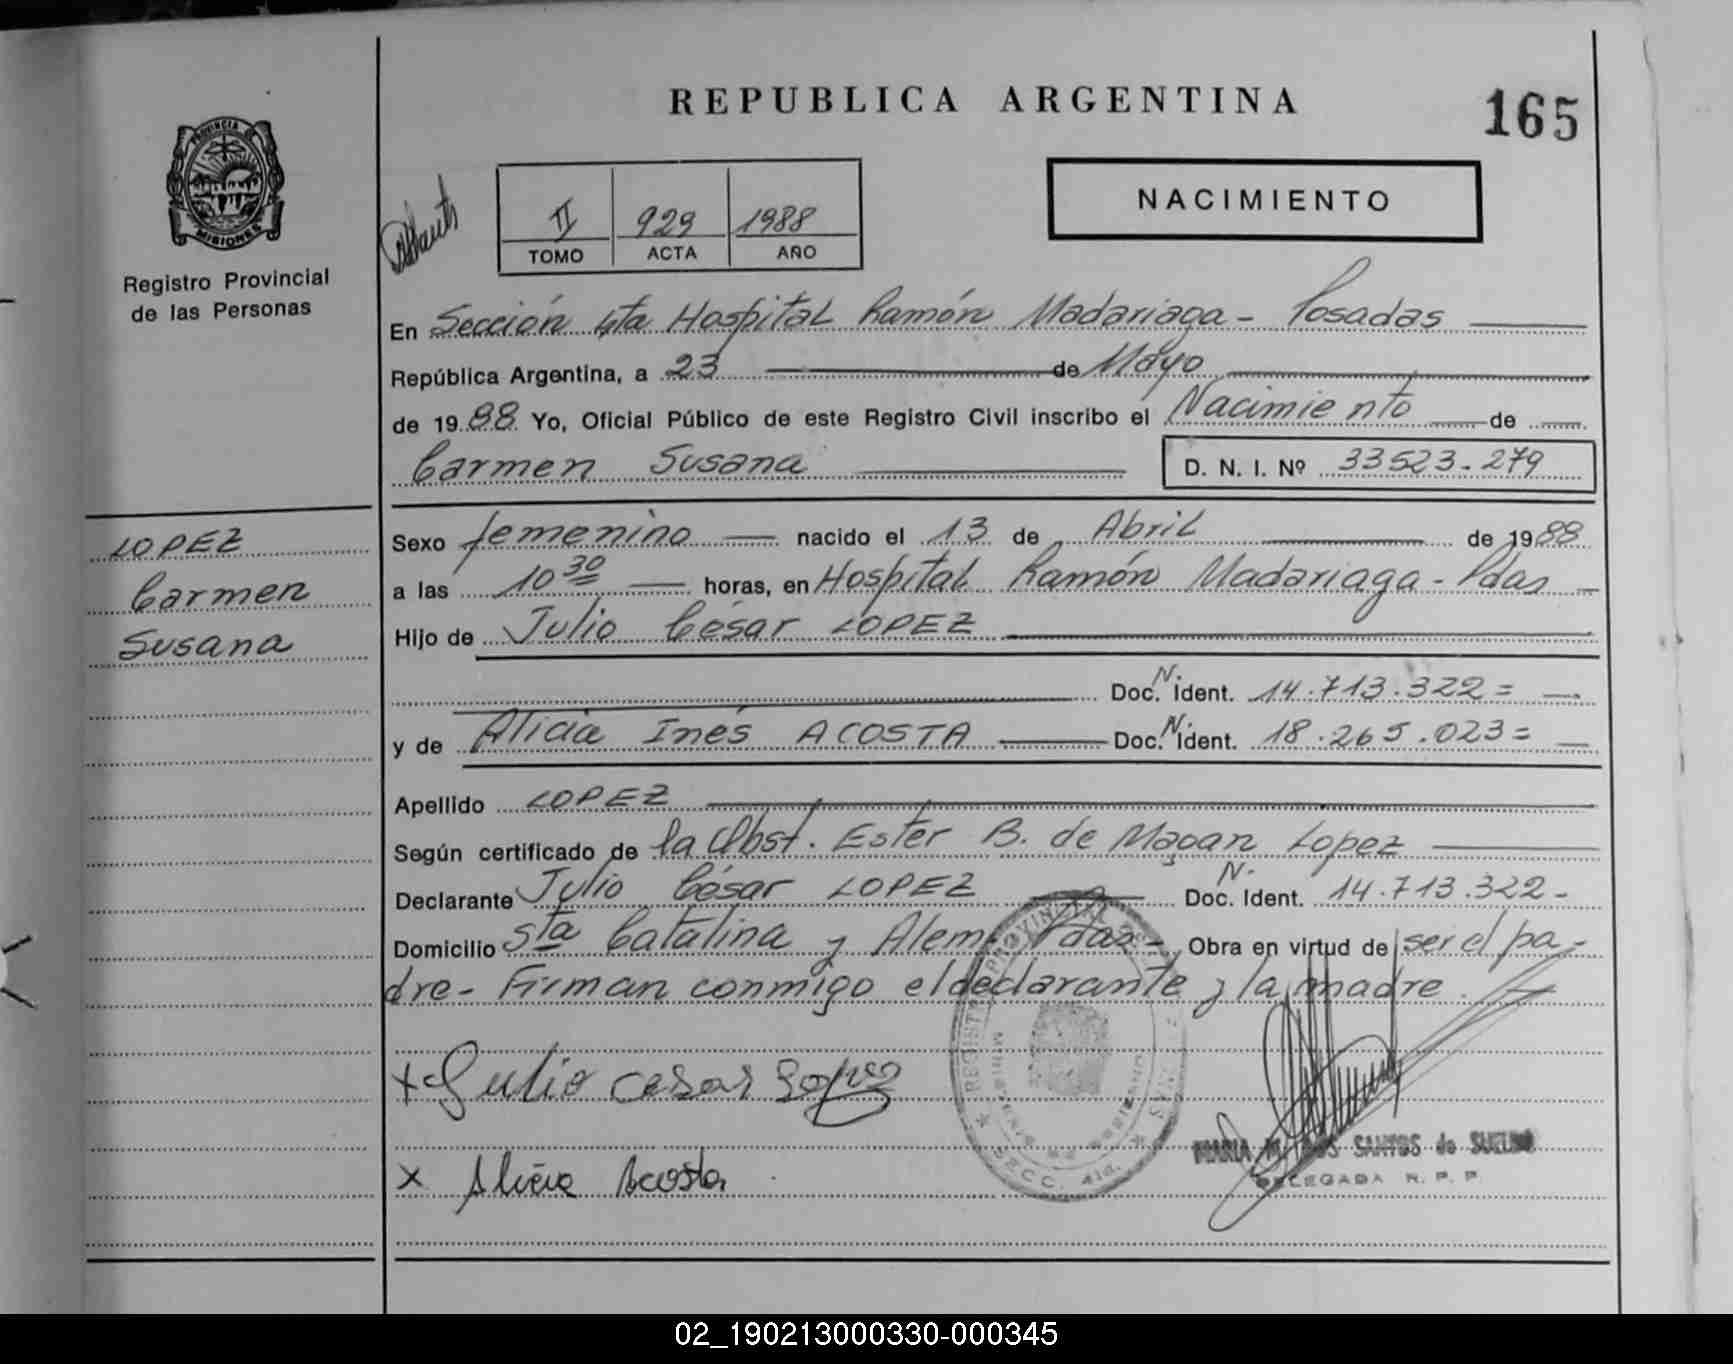 REPUBLICA ARGENTINA
165
PROVINCIA DE
MISIONES
Registro Provincial
de las Personas
NACIMIENTO
II 929 1988
TOMO ACTA AÑO
En Sección 4ta Hospital Ramón Madariaga - Posadas
República Argentina, a 23 de Mayo
de 1988 Yo, Oficial Público de este Registro Civil inscribo el Nacimiento de
Carmen Susana
D. N. I. Nº 33523.279
LOPEZ
Carmen
Susana
Sexo femenino nacido el 13 de Abril de 1988
a las 10 30 horas, en Hospital Ramón Madariaga - Pdas
Hijo de Julio César LOPEZ
Doc. N. Ident. 14.713.322=
y de Alicia Inés ACOSTA Doc. N. Ident. 18.265.023=
Apellido LOPEZ
Según certificado de la Obst. Ester B. de Magan Lopez
Declarante Julio César LOPEZ Doc. N. Ident. 14.713.322-
Domicilio Sta Catalina y Alem - Pdas- Obra en virtud de ser el pa-
dre- Firman conmigo el declarante y la madre.
x Julio Cesar Lopez
x Alicia Acosta
MARIA M. DOS SANTOS de
DELEGADA R. P. P.
02_190213000330-000345